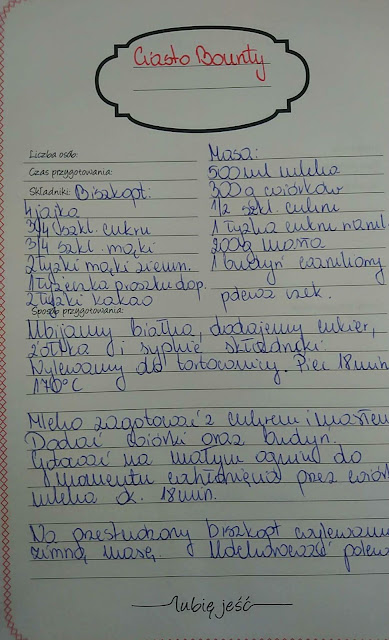 Ciasto Bounty
Liczba osób:
Czas przygotowania:
Składniki: Biszkopt:
4 jajka
3/4 szkl. cukru
3/4 szkl. mąki
2 łyżki mąki ziemn.
1 łyżeczka proszku do p.
2 łyżki kakao
Masa:
500 ml mleka
300 g wiórków
1/2 szkl. cukru
1 łyżka cukru wanil.
200 g masła
1 budyń waniliowy
polewa czek.
Sposób przygotowania:
Ubijamy białka, dodajemy cukier,
żółtka i sypkie składniki.
Wylewamy do tortownicy. Piec 18 min
170°C
Mleko zagotować z cukrem i masłem
Dodać wiórki oraz budyń.
Gotować na małym ogniu do
momentu wchłonięcia przez wiórk
mleka ok. 18 min.
Na przestudzony biszkopt wylewamy
zimną masę. Udekorować polew
lubię jeść